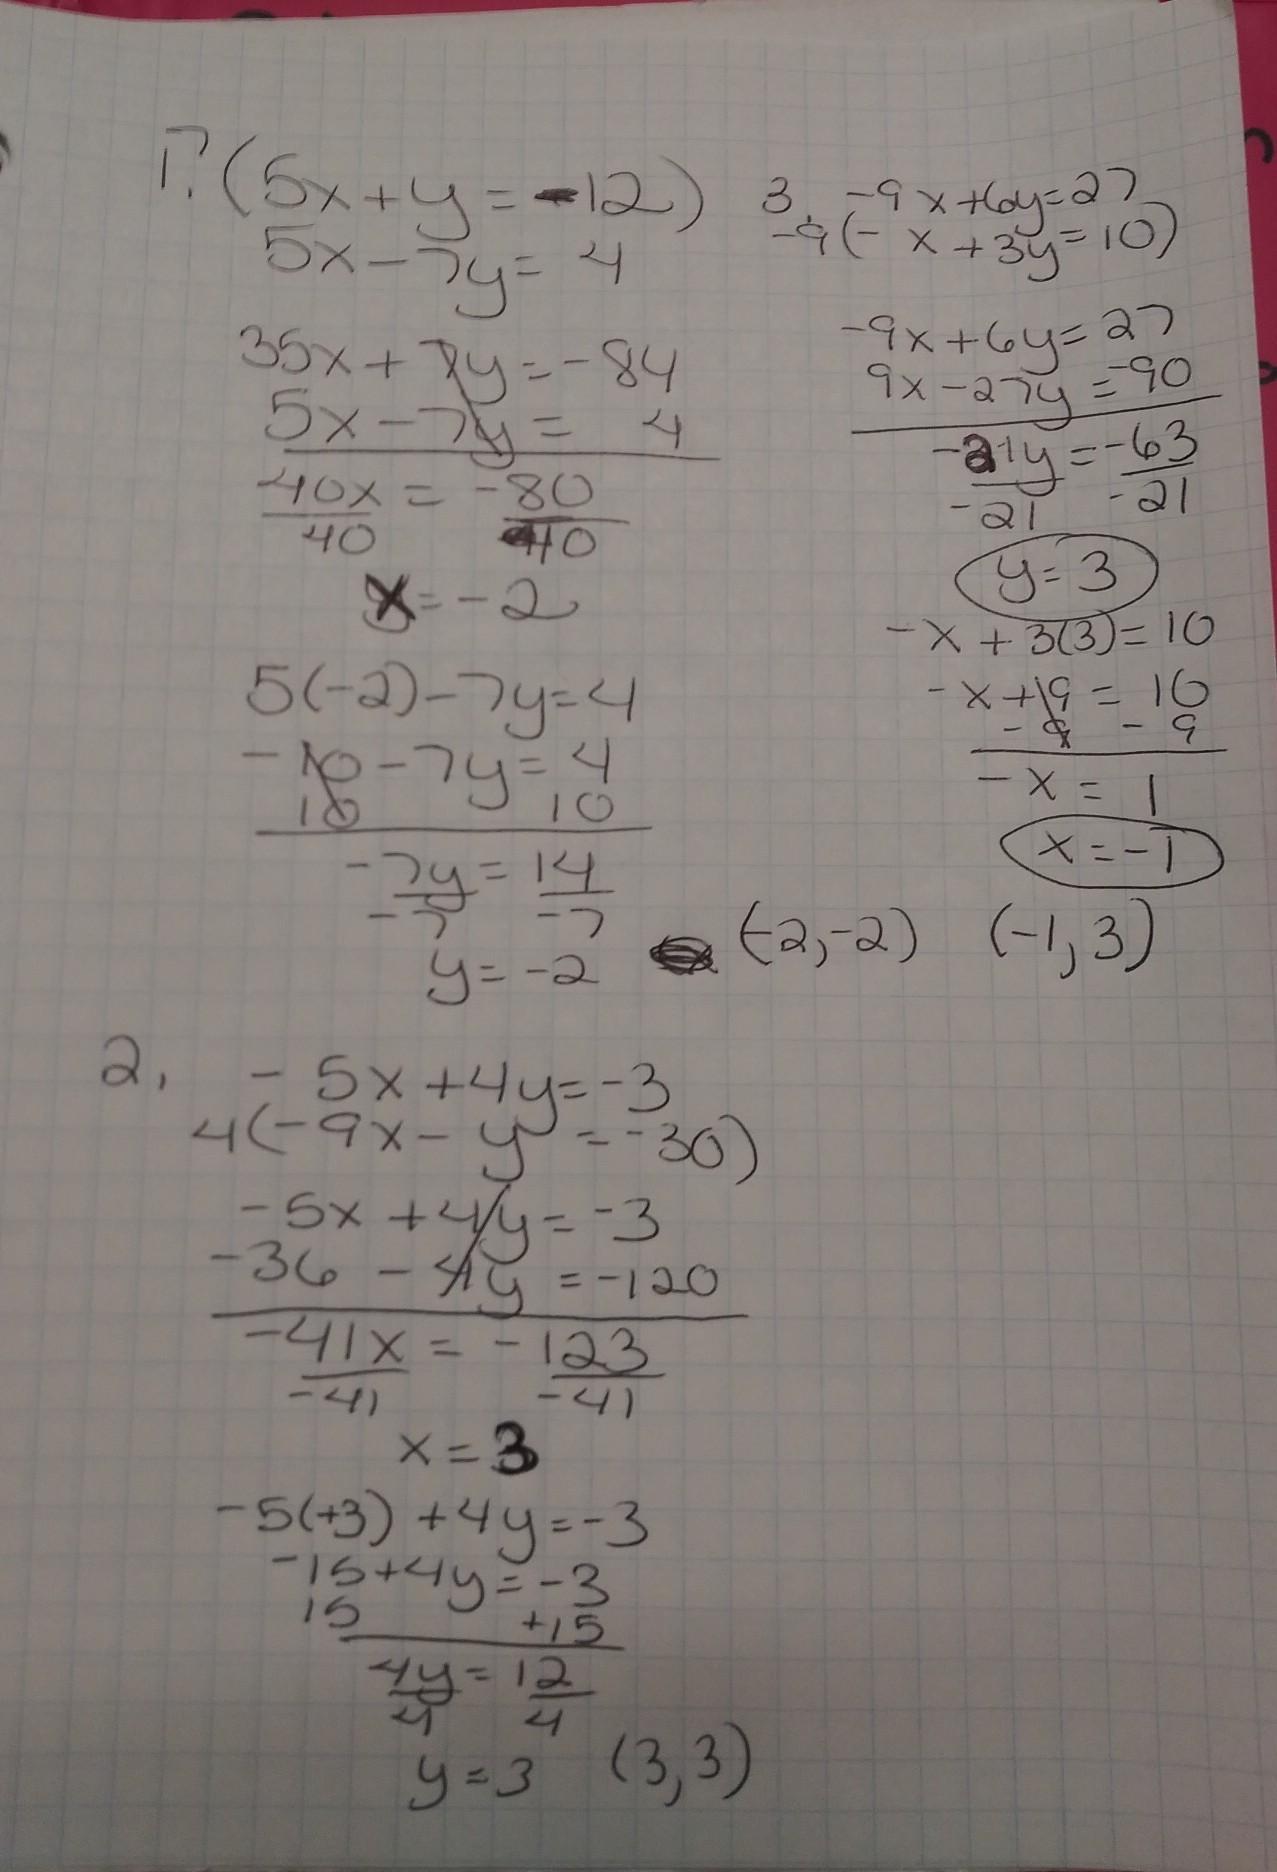 1. 7(5x+y=-12)
5x-7y=4
35x+7y=-84
5x-7y=4
40x=-80
40 40
x=-2
5(-2)-7y=4
-10-7y=4
10 10
-7y=14
-7 -7
y=-2
(-2,-2)
3. -9x+6y=27
-9(-x+3y=10)
-9x+6y=27
9x-27y=-90
-21y=-63
-21 -21
y=3
-x+3(3)=10
-x+9=10
-9 -9
-x=1
x=-1
(-1,3)
2. -5x+4y=-3
4(-9x-y=-30)
-5x+4y=-3
-36-4y=-120
-41x=-123
-41 -41
x=3
-5(+3)+4y=-3
-15+4y=-3
15 +15
4y=12
4 4
y=3 (3,3)